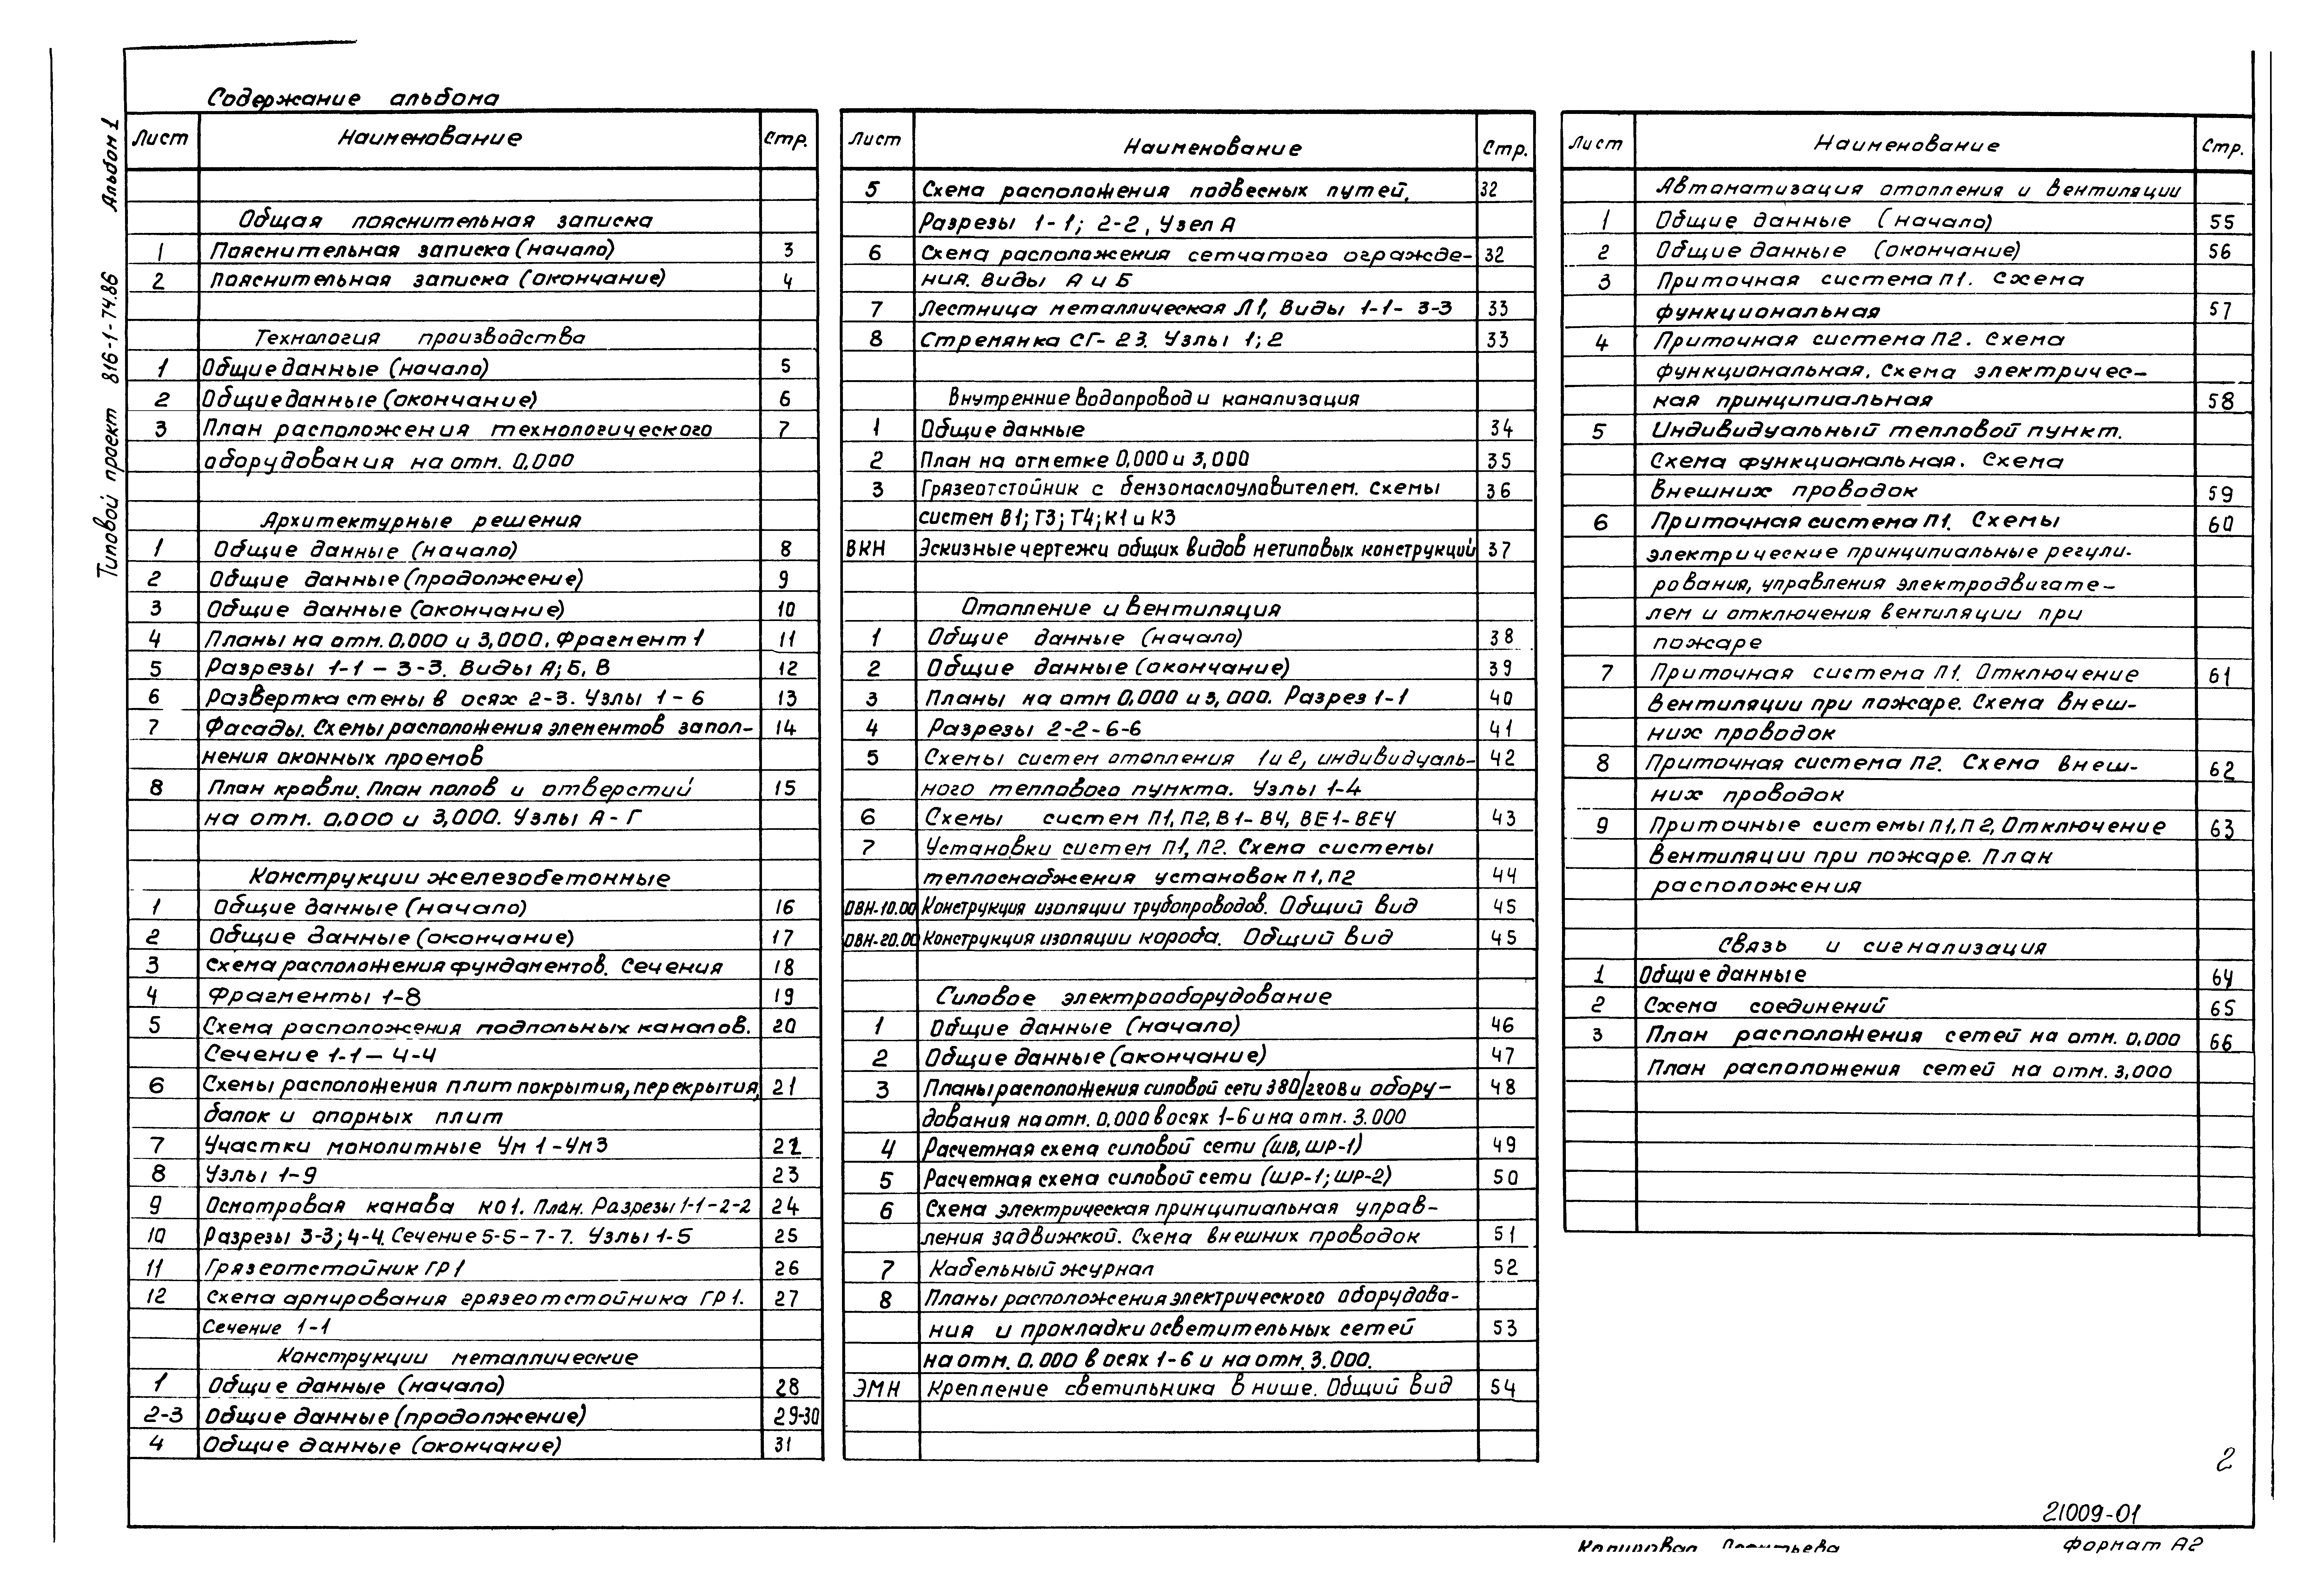 Содержание альбома
Типовой проект 816-1-74.86 Альбом 1
Лист Наименование Стр.
Общая пояснительная записка
1 Пояснительная записка (начало) 3
2 Пояснительная записка (окончание) 4
Технология производства
1 Общие данные (начало) 5
2 Общие данные (окончание) 6
3 План расположения технологического 7
оборудования на отм. 0,000
Архитектурные решения
1 Общие данные (начало) 8
2 Общие данные (продолжение) 9
3 Общие данные (окончание) 10
4 Планы на отм. 0,000 и 3,000. Фрагмент 1 11
5 Разрезы 1-1 – 3-3. Виды А; Б, В 12
6 Развертка стены в осях 2-3. Узлы 1-6 13
7 Фасады. Схемы расположения элементов запол- 14
нения оконных проемов
8 План кровли. План полов и отверстий 15
на отм. 0,000 и 3,000. Узлы А-Г
Конструкции железобетонные
1 Общие данные (начало) 16
2 Общие данные (окончание) 17
3 Схема расположения фундаментов. Сечения 18
4 Фрагменты 1-8 19
5 Схема расположения подпольных каналов. 20
Сечение 1-1 – 4-4
6 Схемы расположения плит покрытия, перекрытия, 21
балок и опорных плит
7 Участки монолитные Ум1-Ум3 22
8 Узлы 1-9 23
9 Осмотровая канава КО1. План. Разрезы 1-1-2-2 24
10 Разрезы 3-3; 4-4. Сечение 5-5-7-7. Узлы 1-5 25
11 Грязеотстойник ГР1 26
12 Схема армирования грязеотстойника ГР1. 27
Сечение 1-1
Конструкции металлические
1 Общие данные (начало) 28
2-3 Общие данные (продолжение) 29-30
4 Общие данные (окончание) 31
Лист Наименование Стр.
5 Схема расположения подвесных путей. 32
Разрезы 1-1; 2-2, Узел А
6 Схема расположения сетчатого огражде- 32
ния. Виды А и Б
7 Лестница металлическая Л1, Виды 1-1- 3-3 33
8 Стремянка СГ-23. Узлы 1; 2 33
Внутренние водопровод и канализация
1 Общие данные 34
2 План на отметке 0,000 и 3,000 35
3 Грязеотстойник с бензомаслоуловителем. Схемы 36
систем В1; Т3; Т4; К1 и К3
ВКН Эскизные чертежи общих видов нетиповых конструкций 37
Отопление и вентиляция
1 Общие данные (начало) 38
2 Общие данные (окончание) 39
3 Планы на отм 0,000 и 3,000. Разрез 1-1 40
4 Разрезы 2-2-6-6 41
5 Схемы систем отопления 1 и 2, индивидуаль- 42
ного теплового пункта. Узлы 1-4
6 Схемы систем П1, П2, В1-В4, ВЕ1-ВЕ4 43
7 Установки систем П1, П2. Схема системы
теплоснабжения установок П1, П2 44
ОВН-10.00 Конструкция изоляции трубопроводов. Общий вид 45
ОВН-20.00 Конструкция изоляции короба. Общий вид 45
Силовое электрооборудование
1 Общие данные (начало) 46
2 Общие данные (окончание) 47
3 Планы расположения силовой сети 380/220В и обору- 48
дования на отм. 0,000 в осях 1-6 и на отм. 3.000
4 Расчетная схема силовой сети (ШВ, ШР-1) 49
5 Расчетная схема силовой сети (ШР-1; ШР-2) 50
6 Схема электрическая принципиальная управ-
ления задвижкой. Схема внешних проводок 51
7 Кабельный журнал 52
8 Планы расположения электрического оборудова-
ния и прокладки осветительных сетей 53
на отм. 0.000 в осях 1-6 и на отм. 3.000.
ЭМН Крепление светильника в нише. Общий вид 54
Лист Наименование Стр.
Автоматизация отопления и вентиляции
1 Общие данные (начало) 55
2 Общие данные (окончание) 56
3 Приточная система П1. Схема
функциональная 57
4 Приточная система П2. Схема
функциональная. Схема электричес-
кая принципиальная 58
5 Индивидуальный тепловой пункт.
Схема функциональная. Схема
внешних проводок 59
6 Приточная система П1. Схемы 60
электрические принципиальные регули-
рования, управления электродвигате-
лем и отключения вентиляции при
пожаре
7 Приточная система П1. Отключение 61
вентиляции при пожаре. Схема внеш-
них проводок
8 Приточная система П2. Схема внеш- 62
них проводок
9 Приточные системы П1, П2, Отключение 63
вентиляции при пожаре. План
расположения
Связь и сигнализация
1 Общие данные 64
2 Схема соединений 65
3 План расположения сетей на отм. 0,000 66
План расположения сетей на отм. 3,000
2
21009-01
Копировал Формат А2